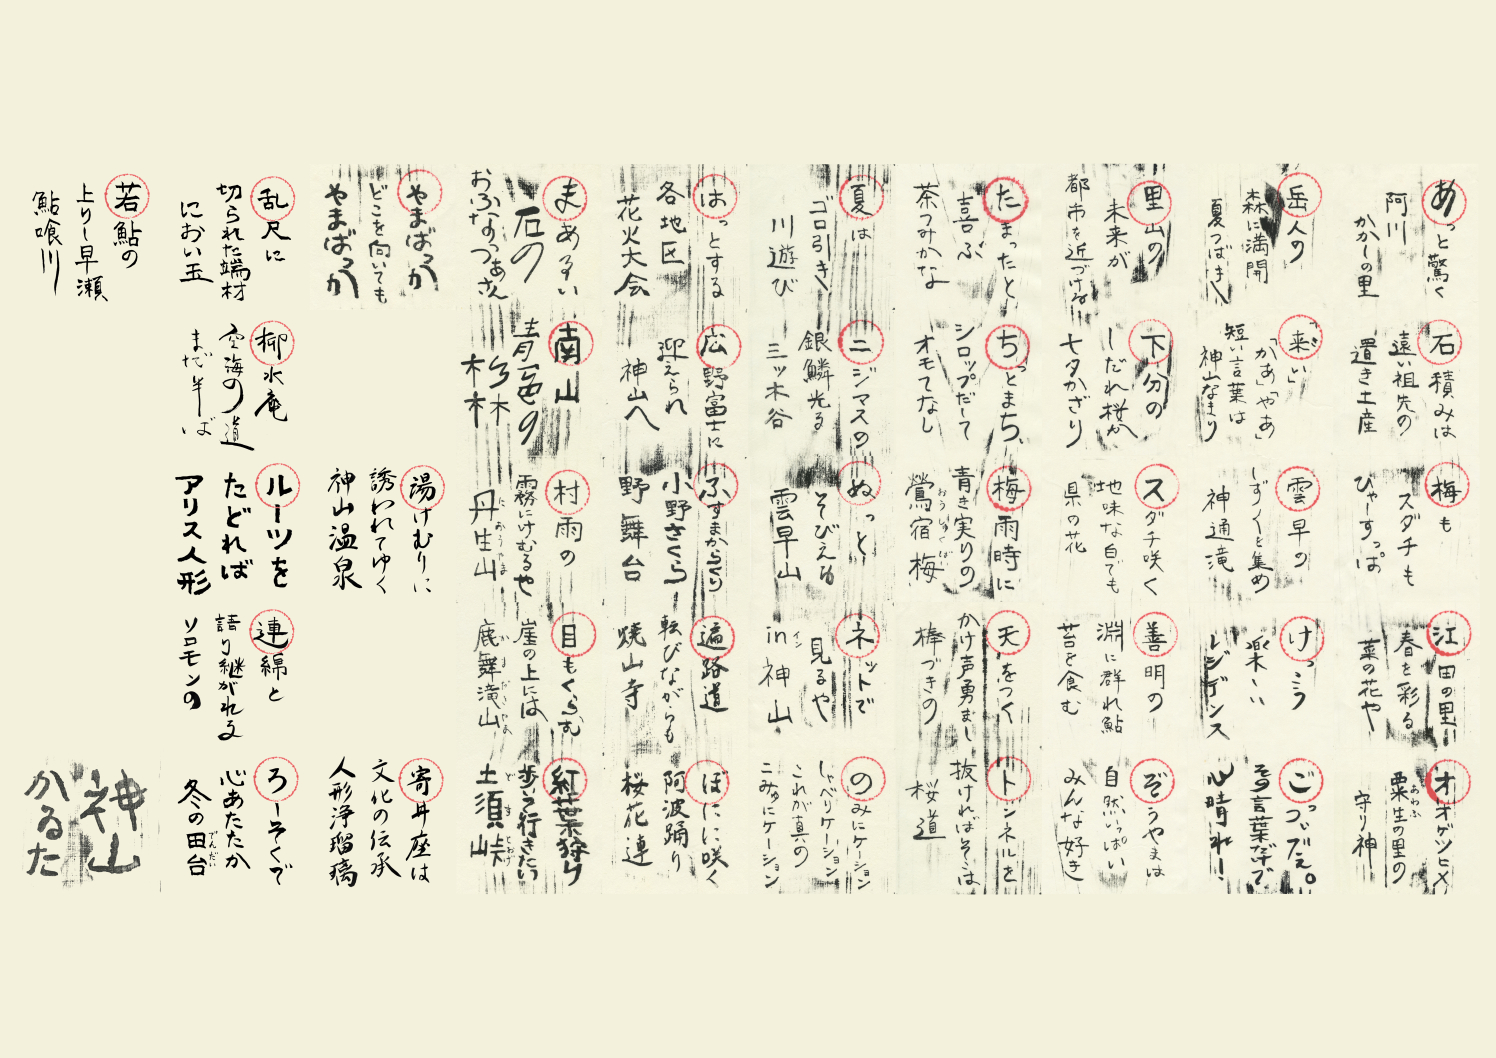 あっと驚く
阿川
かかしの里
石積みは
遠い祖先の
置き土産
梅も
スダチも
ひゃーすっぱ
江田の里
春を彩る
菜の花や
オオゲツヒメ
粟生の里の
あわふ
守り神
岳人の
森に満開
夏つばき
来い
き
「かあ」「やあ」
短い言葉は
神山なまり
雲早の
しずくを集め
神通滝
けっこう
楽しい
レジデンス
ごっついでぇ。
多言葉だけで
心晴れ!
里山の
未来が
都市を近づける
下分の
しだれ桜か
七夕かざり
スダチ咲く
地味な白でも
県の花
善明の
淵に群れ鮎
苔を食む
ぞうやまは
自然いっぱい
みんな好き
たまったと
喜ぶ
茶つみかな
ちっとまち
シロップだして
オモてなし
梅雨時に
青き実りの
鶯宿梅
おうしゅくばい
天をつく
かけ声勇まし
棒づきの
トンネルを
抜ければそこは
桜道
夏は
ゴロ引き
川遊び
ニジマスの
銀鱗光る
三ッ木谷
ぬっと
そびえる
雲早山
ネットで
見るや
イン
in 神山
のみにケーション
しゃべりケーション
これが真の
こみゅにケーション
はっとする
各地区
花火大会
広野富士に
迎えられ
神山へ
ふすまからくり
小野さくら
野舞台
遍路道
転びながらも
焼山寺
ぼにに咲く
阿波踊り
桜花連
まあるい
石の
おふなつぁさん
南山
青色の
杉木林
村雨の
霧にけむるや
丹生山
にゅうやま
目もくらむ
崖の上には
鹿舞滝山
紅葉狩り
歩う行きたい
土須峠
どすとうげ
やまばっか
どこを向いても
やまばっか
湯けむりに
誘われてゆく
神山温泉
寄井座は
文化の伝承
人形浄瑠璃
乱尺に
切られた端材
におい玉
柳水庵
空海の道
まだ半ば
ルーツを
たどれば
アリス人形
連綿と
語り継がれる
ソロモンの
ろーそくで
心あたたか
冬の田台
でんだい
若鮎の
上りし早瀬
鮎喰川
神山
かるた